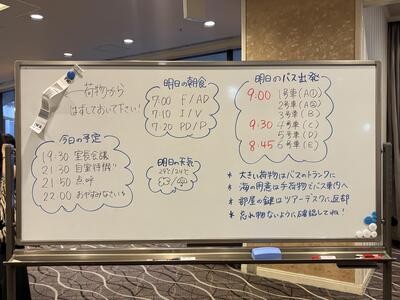 荷物から
はずしておいて下さい!
今日の予定
19:30 室長会議
21:30 自室待機
21:50 点呼
22:00 おやすみなさい
明日の朝食
7:00 F/AD
7:10 I/V
7:20 PD/P
明日の天気
29℃/24℃
明日のバス出発
9:00 1号車(A①)
2号車(A②)
3号車(B)
9:30 4号車(C)
5号車(D)
8:45 6号車(E)
* 大きい荷物はバスのトランクに
* 海の用意は手荷物でバス車内へ
* 部屋の鍵はツアーデスクに返却
* 忘れ物ないように確認してね!